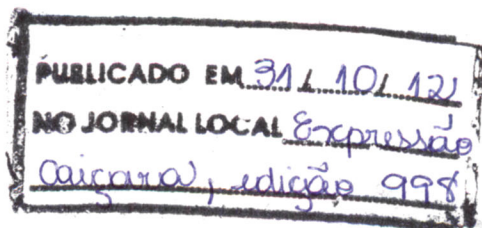 PUBLICADO EM 31/10/12
NO JORNAL LOCAL Expressão
Caiçara, edição 998